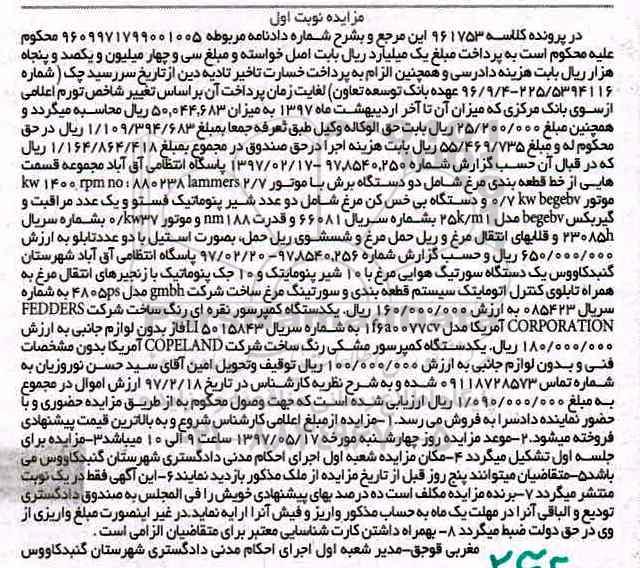 مزایده نوبت اول
در پرونده کلاسه ۹۶۱۷۵۳ این مرجع و بشرح شماره دادنامه مربوطه ۹۶۰۹۹۷۱۷۹۹۰۰۱۰۰۵ محکوم
علیه محکوم است به پرداخت مبلغ یک میلیارد ریال بابت اصل خواسته و مبلغ سی و چهار میلیون و یکصد و پنجاه
هزار ریال بابت هزینه دادرسی و همچنین الزام به پرداخت خسارت تاخیر تادیه دین از تاریخ سررسید چک ( شماره
۲۲۵/۵۳۹۴۱۱۶-۹۶/۹/۴ عهده بانک توسعه تعاون) لغایت زمان پرداخت آن بر اساس تغییر شاخص تورم اعلامی
ازسوی بانک مرکزی که میزان آن تا آخر اردیبهشت ماه ۱۳۹۷ به میزان ۵۰,۰۴۴,۶۸۳ ریال محاسبه میگردد و
همچنین مبلغ ۲۵/۲۰۰/۰۰۰ ریال بابت حق الوکاله وکیل طبق تعرفه جمعا بمبلغ ۱/۱۰۹/۳۹۴/۶۸۳ ریال در حق
محکوم له و مبلغ ۵۵/۴۶۹/۷۳۵ ریال بابت هزینه اجرا درحق صندوق در مجموع بمبلغ ۱/۱۶۴/۸۶۴/۴۱۸ ریال
که در قبال آن حسب گزارش شماره ۹۷۸۵۴۰,۲۵۰-۱۳۹۷/۰۲/۱۷ پاسگاه انتظامی آق آباد مجموعه قسمت
هایی از خط قطعه بندی مرغ شامل دو دستگاه برش با موتور lammers ۲/۷ kw ۱۴۰۰ rpm no ۱۸۸۰۲۳۸
موتور ۰/۷ kw begebv و دستگاه بی خس کن مرغ شامل دو عدد شیر پنوماتیک فستو و یک عدد مراقبت و
گیربکس begebv مدل ۲۵k/m۱ بشماره سریال ۶۶۰۸۱ و قدرت nm۱۸۸ و موتور ۰/۳۷kw بشماره سریال
۲۳۰۸۵h و قلابهای انتقال مرغ و ریل حمل مرغ و شستشوی ریل حمل، بصورت استیل با دو عددتابلو به ارزش
۶۵۰/۰۰۰/۰۰۰ ریال و حسب گزارش شماره ۹۷۸۵۴۰,۲۵۶-۹۷/۰۲/۲۰ پاسگاه انتظامی آق آباد شهرستان
گنبدکاووس یک دستگاه سورتیگ هوایی مرغ با ۱۰ شیر پنوماتیک و ۱۰ جک پنوماتیک با زنجیرهای انتقال مرغ به
همراه تابلوی کنترل اتوماتیک سیستم قطعه بندی و سورتینگ مرغ ساخت شرکت gmbh مدل ۴۸۰۵ps به شماره
سریال ۰۸۵۴۲۳ به ارزش ۱۶۰/۰۰۰/۰۰۰ ریال. یکدستگاه کمپرسور نقره ای رنگ ساخت شرکت FEDDERS
CORPORATION آمریکا مدل ۱f۶a۰۰۷۷cv به شماره سریال LI۵۰۱۵۸۴۳فاز بدون لوازم جانبی به ارزش
۱۸۰/۰۰۰/۰۰۰ ریال. یکدستگاه کمپرسور مشکی رنگ ساخت شرکت COPELAND آمریکا بدون مشخصات
فنی و بدون لوازم جانبی به ارزش ۱۰۰/۰۰۰/۰۰۰ ریال توقیف وتحویل امین آقای سید حسن نوروزیان به
شماره تماس ۰۹۱۱۸۷۲۸۵۷۳ شده و به شرح نظریه کارشناس در تاریخ ۹۷/۲/۱۸ ارزش اموال در مجموع
به مبلغ ۱/۰۹۰/۰۰۰/۰۰۰ ریال ارزیابی شده است که جهت وصول محکوم به از طریق مزایده حضوری و با
حضور نماینده دادسرا به فروش می رسد. ۱-مزایده ازمبلغ اعلامی کارشناس شروع و به بالاترین قیمت پیشنهادی
فروخته میشود.۲-موعد مزایده روز چهارشنبه مورخه ۱۳۹۷/۰۵/۱۷ ساعت ۹ الی ۱۰ میباشد۳-مزایده برای
جلسه اول تشکیل میگردد ۴-مکان مزایده شعبه اول اجرای احکام مدنی دادگستری شهرستان گنبدکاووس می
باشد۵-متقاضیان میتوانند پنج روز قبل از تاریخ مزایده از ملک مذکور بازدید نمایند۶-این آگهی فقط در یک نوبت
منتشر میگردد ۷-برنده مزایده مکلف است ده درصد بهای پیشنهادی خویش را فی المجلس به صندوق دادگستری
تودیع و الباقی آنرا در مهلت یک ماه به حساب مذکور واریز و فیش آنرا ارایه نماید.در غیر اینصورت مبلغ واریزی از
وی در حق دولت ضبط میگردد ۸- بهمراه داشتن کارت شناسایی معتبر برای متقاضیان الزامی است .
مغربی قوجق-مدیر شعبه اول اجرای احکام مدنی دادگستری شهرستان گنبدکاووس